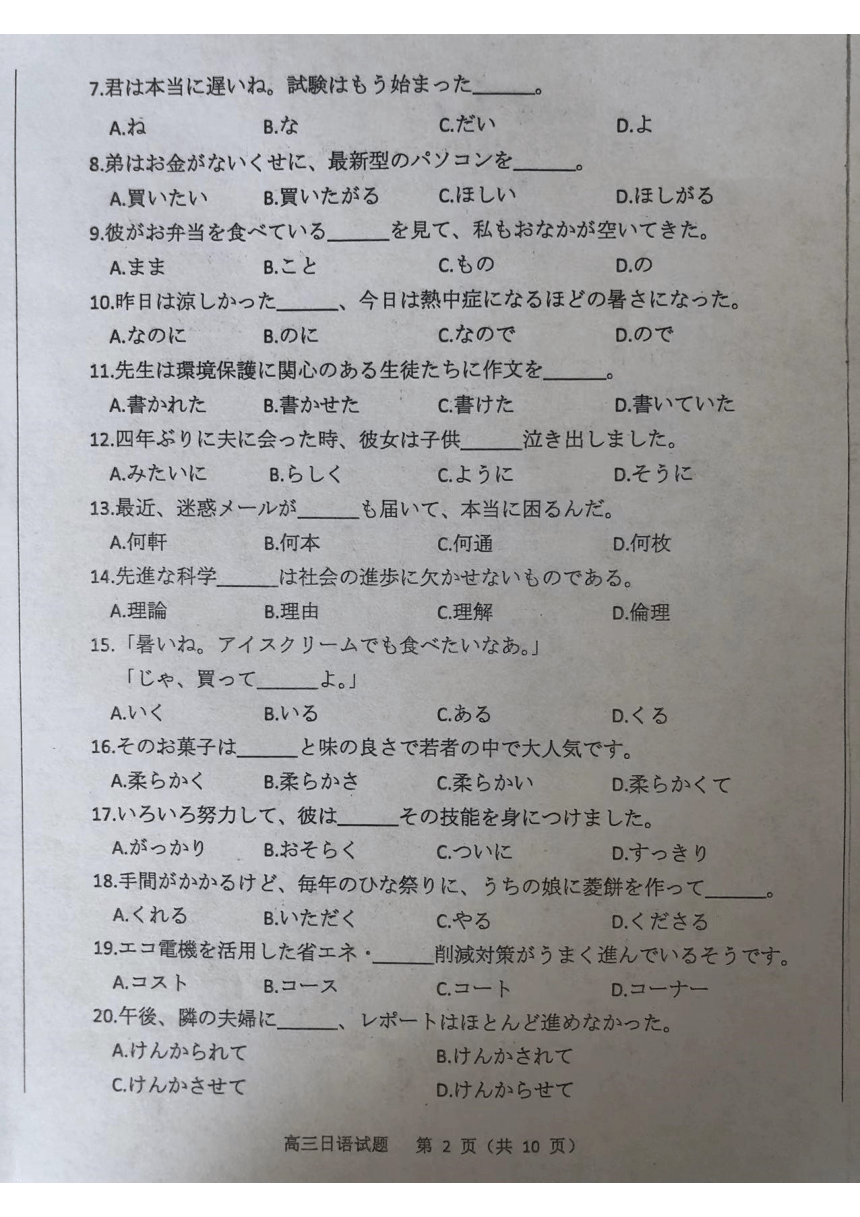 7.君は本当に遅いね。試験はもう始まった______。
A.ね B.な C.だい D.よ
8.弟はお金がないくせに、最新型のパソコンを______。
A.買いたい B.買いたがる C.ほしい D.ほしがる
9.彼がお弁当を食べている______を見て、私もおなかが空いてきた。
A.まま B.こと C.もの D.の
10.昨日は涼しかった______、今日は熱中症になるほどの暑さになった。
A.なのに B.のに C.なので D.ので
11.先生は環境保護に関心のある生徒たちに作文を______。
A.書かれた B.書かせた C.書けた D.書いていた
12.四年ぶりに夫に会った時、彼女は子供______泣き出しました。
A.みたいに B.らしく C.ように D.そうに
13.最近、迷惑メールが______も届いて、本当に困るんだ。
A.何軒 B.何本 C.何通 D.何枚
14.先進な科学______は社会の進歩に欠かせないものである。
A.理論 B.理由 C.理解 D.倫理
15.「暑いね。アイスクリームでも食べたいなあ。」
「じゃ、買って______よ。」
A.いく B.いる C.ある D.くる
16.そのお菓子は______と味の良さで若者の中で大人気です。
A.柔らかく B.柔らかさ C.柔らかい D.柔らかくて
17.いろいろ努力して、彼は______その技能を身につけました。
A.がっかり B.おそらく C.ついに D.すっきり
18.手間がかかるけど、毎年のひな祭りに、うちの娘に菱餅を作って______。
A.くれる B.いただく C.やる D.くださる
19.エコ電機を活用した省エネ・______削減対策がうまく進んでいるそうです。
A.コスト B.コース C.コート D.コーナー
20.午後、隣の夫婦に______、レポートはほとんど進めなかった。
A.けんかられて B.けんかされて
C.けんかさせて D.けんからせて
高三日语试题 第 2 页（共 10 页）